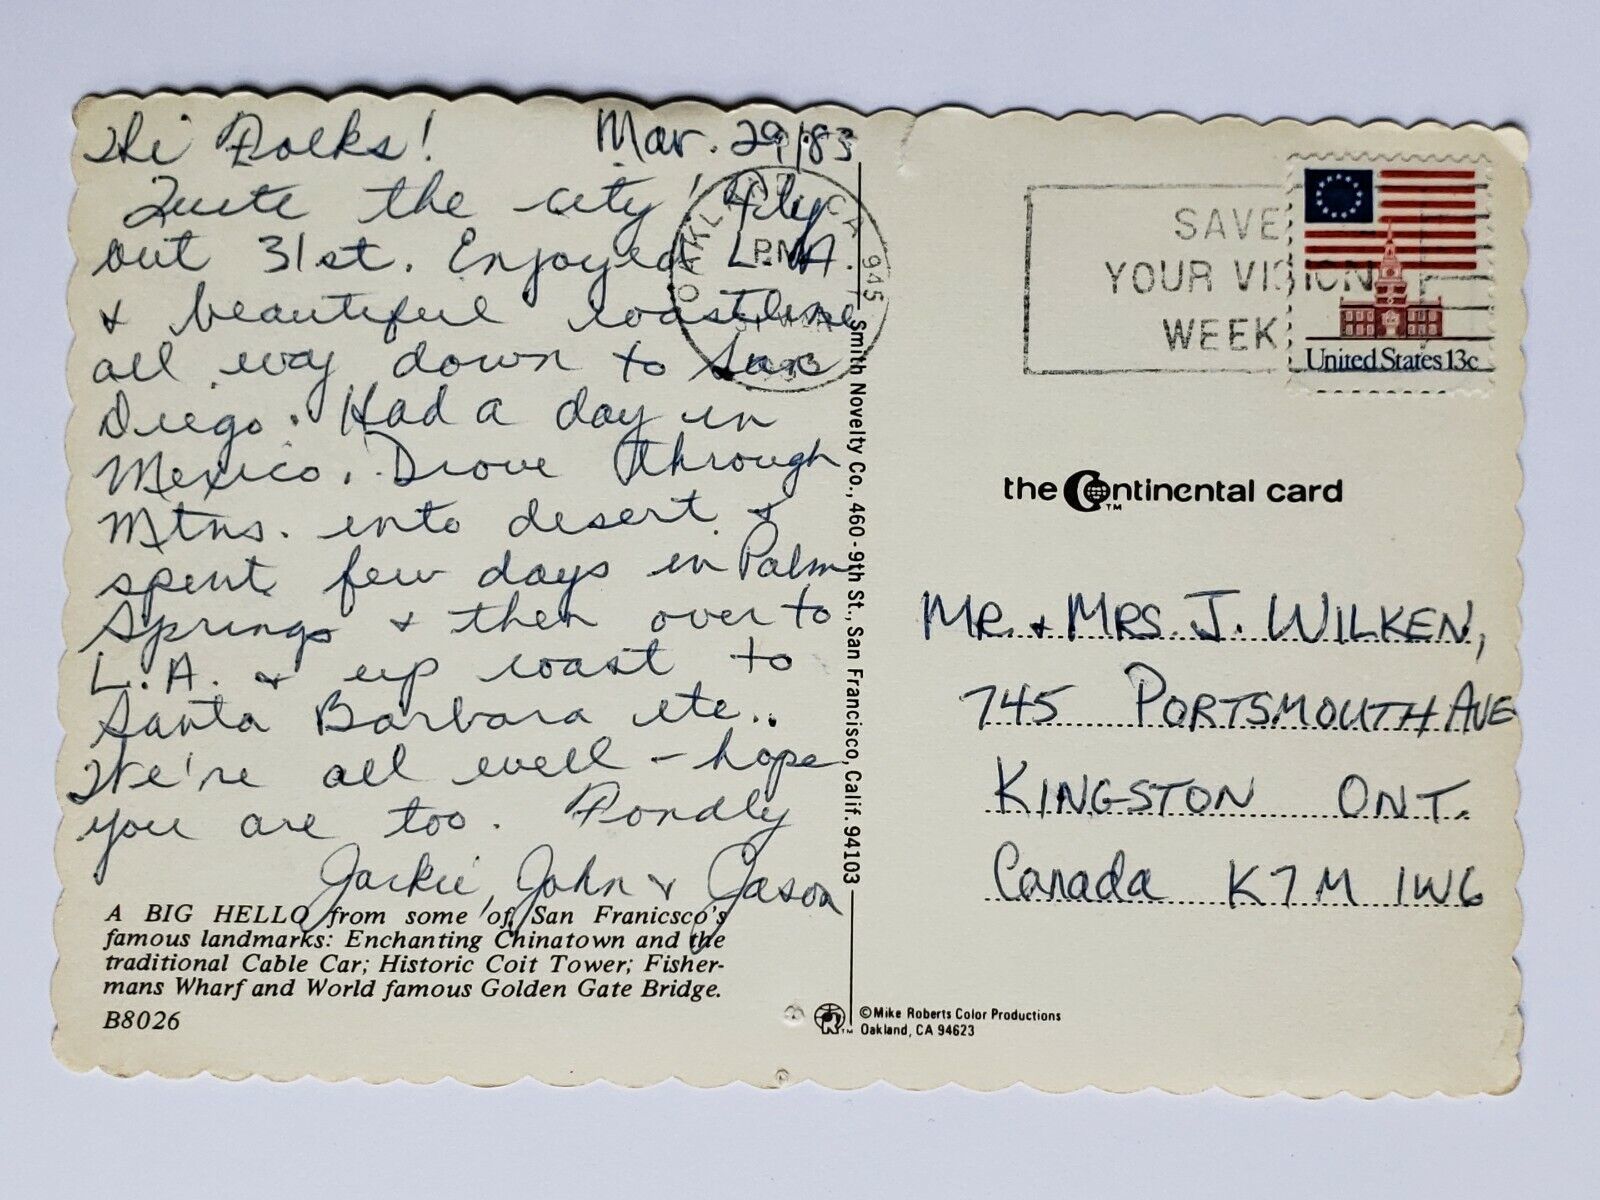 Hi Folks! Mar. 29/83
Quite the city! Fly
out 31st. Enjoyed L.A.
& beautiful coastline
all way down to San
Diego. Had a day in
Mexico. Drove through
Mtns. into desert &
spent few days in Palm
Springs & then over to
L.A. & up coast to
Santa Barbara etc..
We're all well - hope
you are too. Fondly
Jackie, John & Jason
A BIG HELLO from some of San Franicsco's
famous landmarks: Enchanting Chinatown and the
traditional Cable Car; Historic Coit Tower; Fisher-
mans Wharf and World famous Golden Gate Bridge.
B8026
OAKLAND CA 945
PM
31 MAR
1983
Smith Novelty Co., 460-9th St., San Francisco, Calif. 94103
SAVE
YOUR VISION
WEEK
United States 13c
the Continental card
TM
MR. & MRS. J. WILKEN,
745 PORTSMOUTH AVE
KINGSTON ONT.
Canada K7M 1W6
TM
©Mike Roberts Color Productions
Oakland, CA 94623